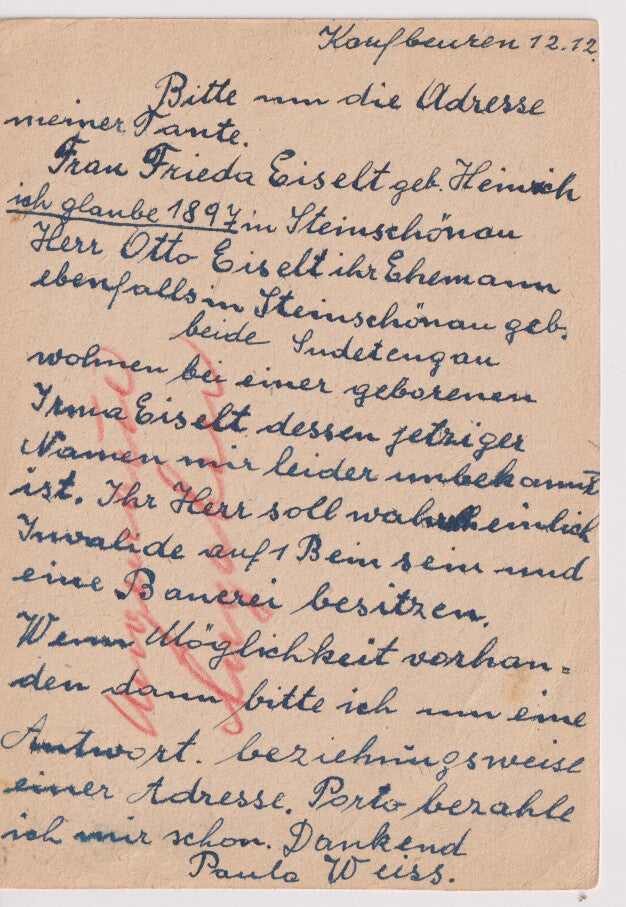 Kaufbeuren 12.12.
Bitte um die Adresse
meiner Tante.
Frau Frieda Eiselt geb. Heinrich
ich glaube 1897 in Steinschönau
Herr Otto Eiselt ihr Ehemann
ebenfalls in Steinschönau geb.
beide Sudetengau
wohnen bei einer geborenen
Irma Eiselt dessen jetziger
Namen mir leider unbekannt
ist. Ihr Herr soll wahrscheinlich
Invalide auf 1 Bein sein und
eine Bauerei besitzen.
Wenn Möglichkeit vorhan=
den dann bitte ich um eine
Antwort. beziehungsweise
einer Adresse. Porto bezahle
ich mir schon. Dankend
Paula Weiss.